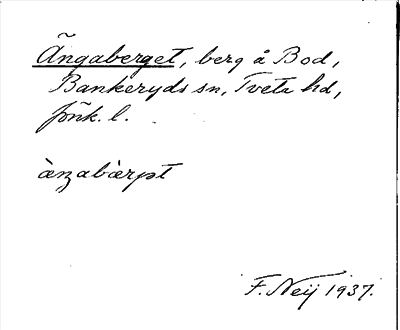 Ängaberget, berg å Bod,
Bankeryds sn, Tveta hd,
Jönk. l.
F. Neij 1937.